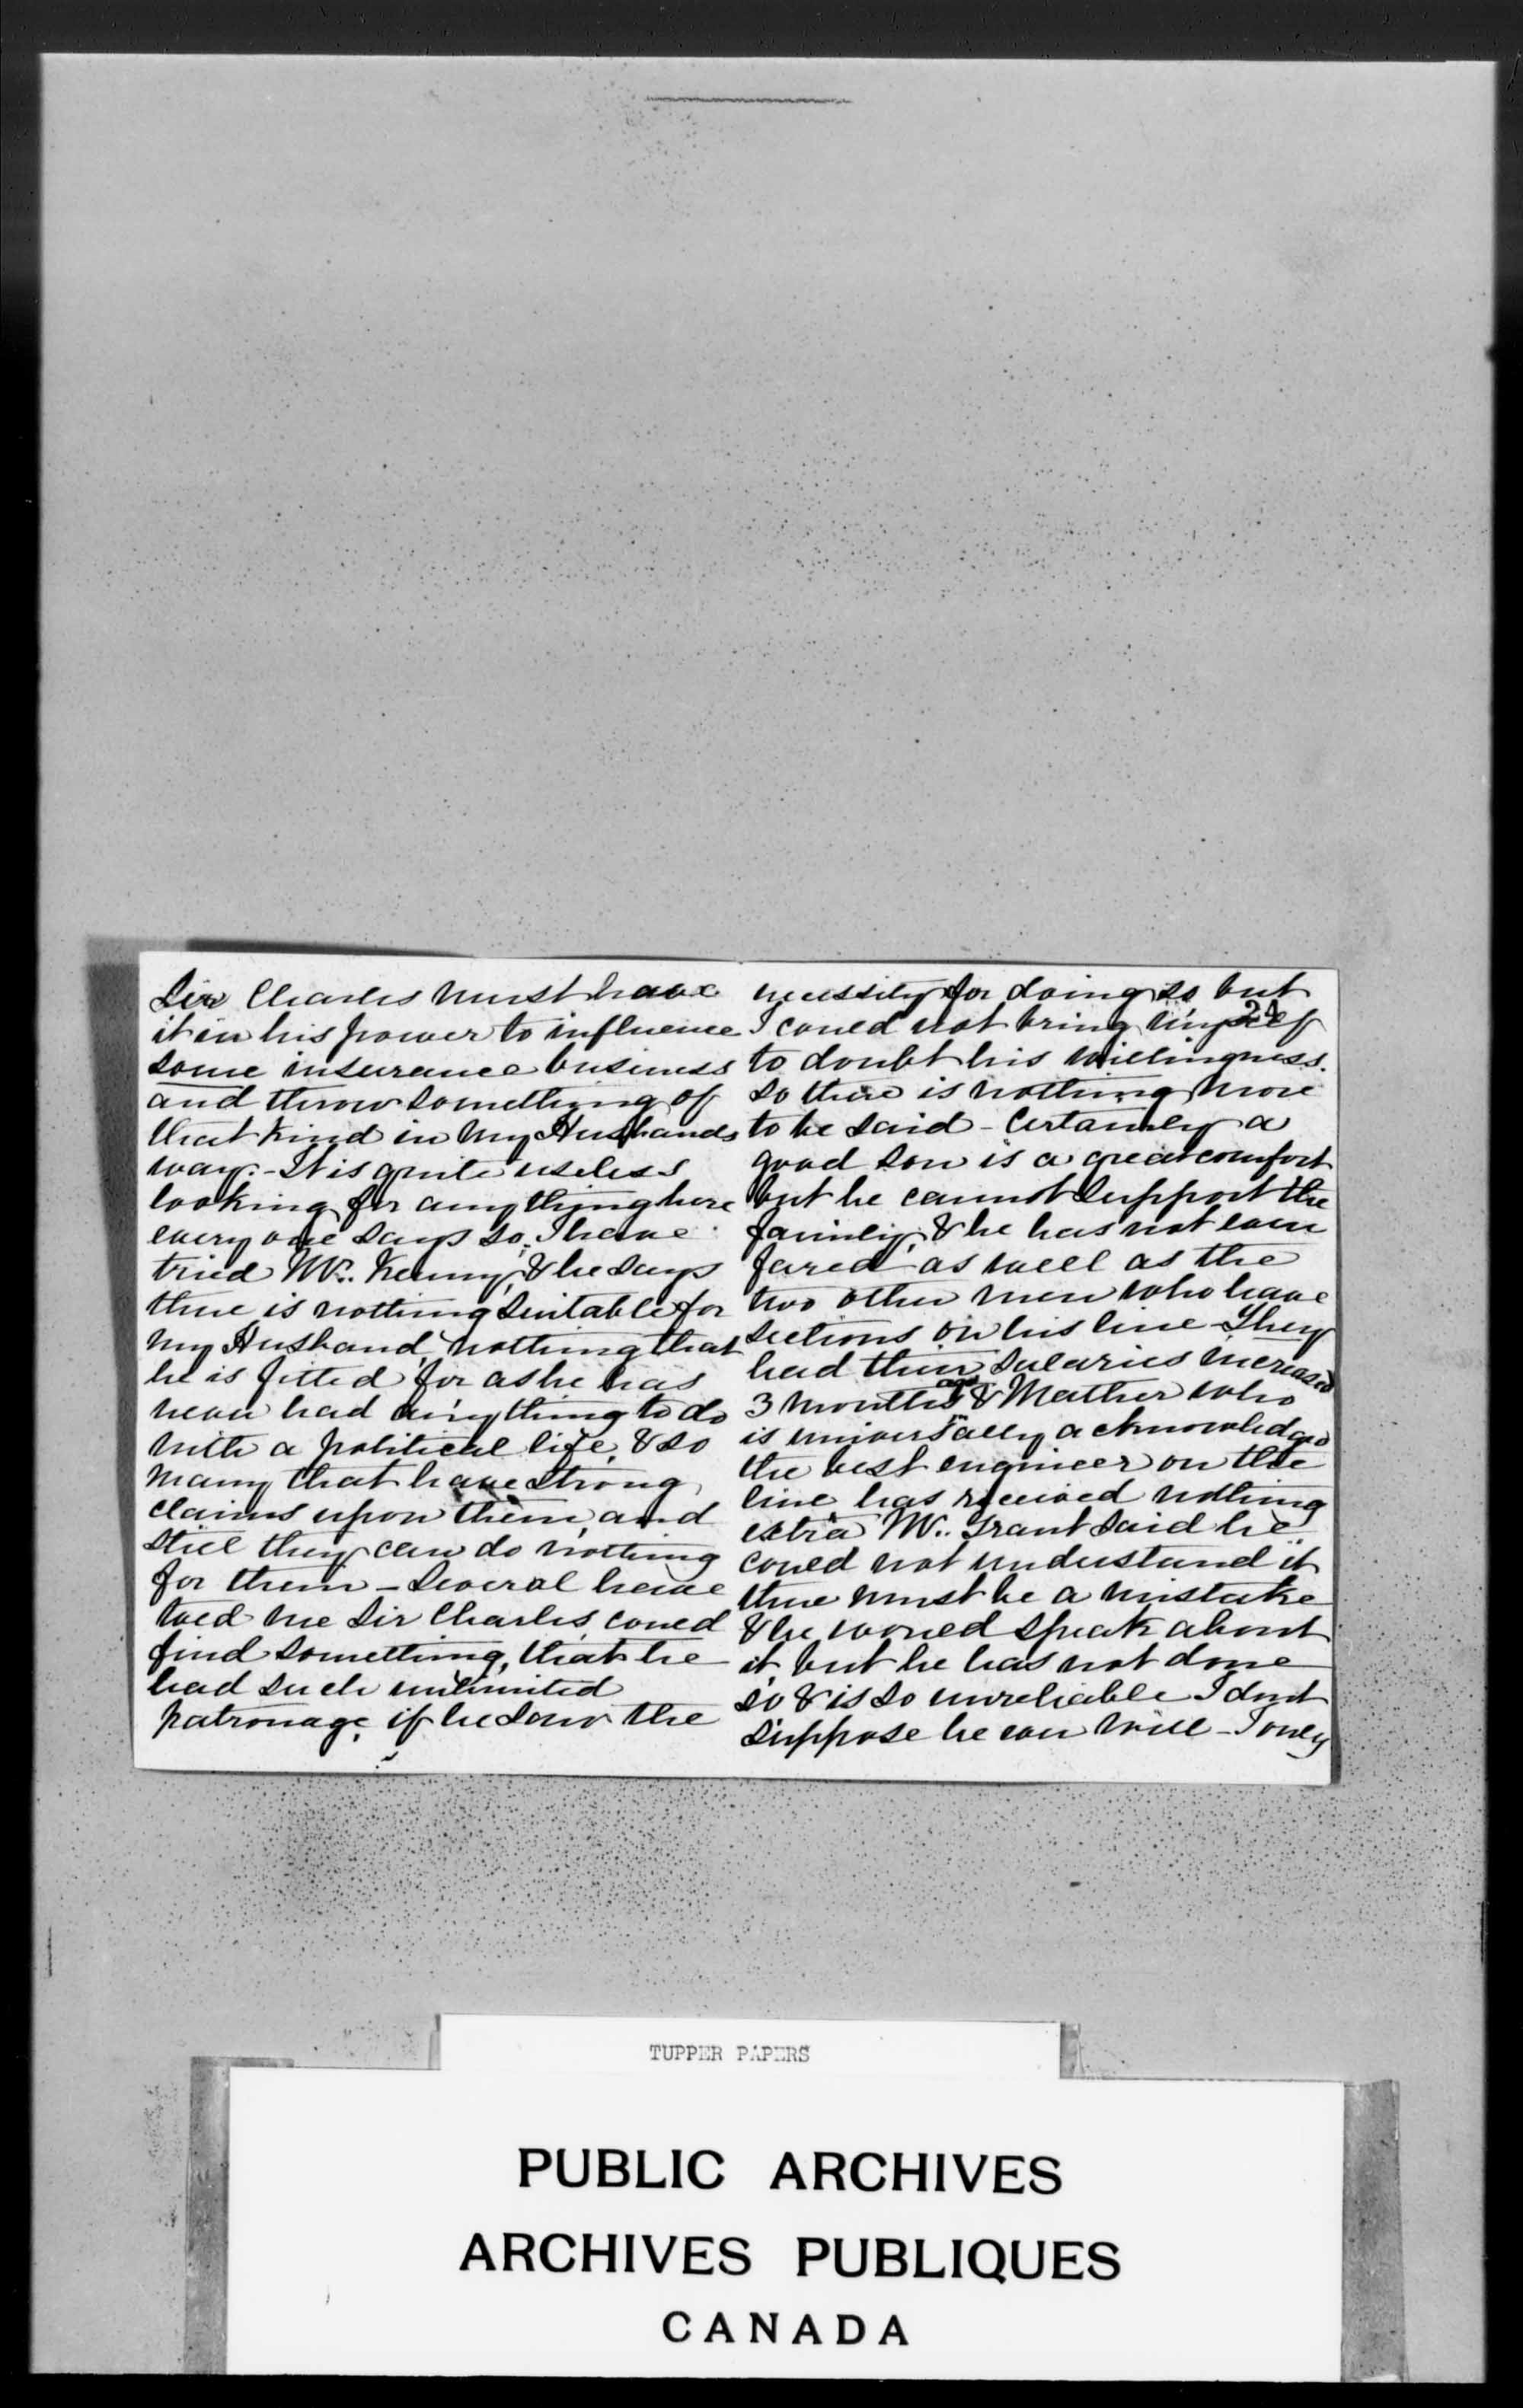 Sir Charles must have
it in his power to influence
some insurance business
and throw something of
that kind in my Husbands
way. - It is quite useless
looking for anything here
every one says so. I have
tried Mr. Kenny, & he says
there is nothing suitable for
my Husband, nothing that
he is fitted for as he has
never had anything to do
with a political life, & so
many that have strong
claims upon them, and
still they can do nothing
for them - Several have
told me Sir Charles could
find something, that he
had such unlimited
patronage, if he saw the
necessity for doing so but
21
I could not bring myself
to doubt his willingness.
So there is nothing more
to be said - Certainly a
good son is a great comfort
but he cannot support the
family, & he has not even
fared as well as the
two other men who have
sections on his line - They
had their salaries increased
3 months ago & Mather who
is universally acknowledged
the best engineer on the
line has received nothing
extra Mr. Grant said he
could not understand it
there must be a mistake
& he would speak about
it, but he has not done
so & is so unreliable I dont
suppose he ever will - I only
TUPPER PAPERS
PUBLIC ARCHIVES
ARCHIVES PUBLIQUES
CANADA